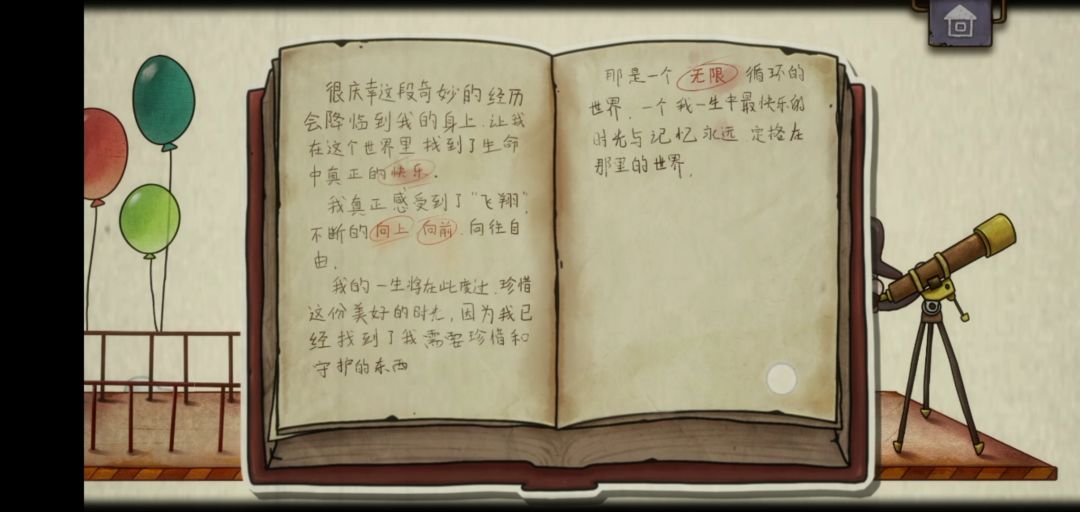 很庆幸这段奇妙的经历
会降临到我的身上.让我
在这个世界里找到了生命
中真正的快乐。
我真正感受到了“飞翔”,
不断的向上 向前.向往自
由.
我的一生将在此度过.珍惜
这份美好的时光,因为我已
经找到了我需要珍惜和
守护的东西
那是一个无限循环的
世界.一个我一生中最快乐的
时光与记忆永远定格在
那里的世界.